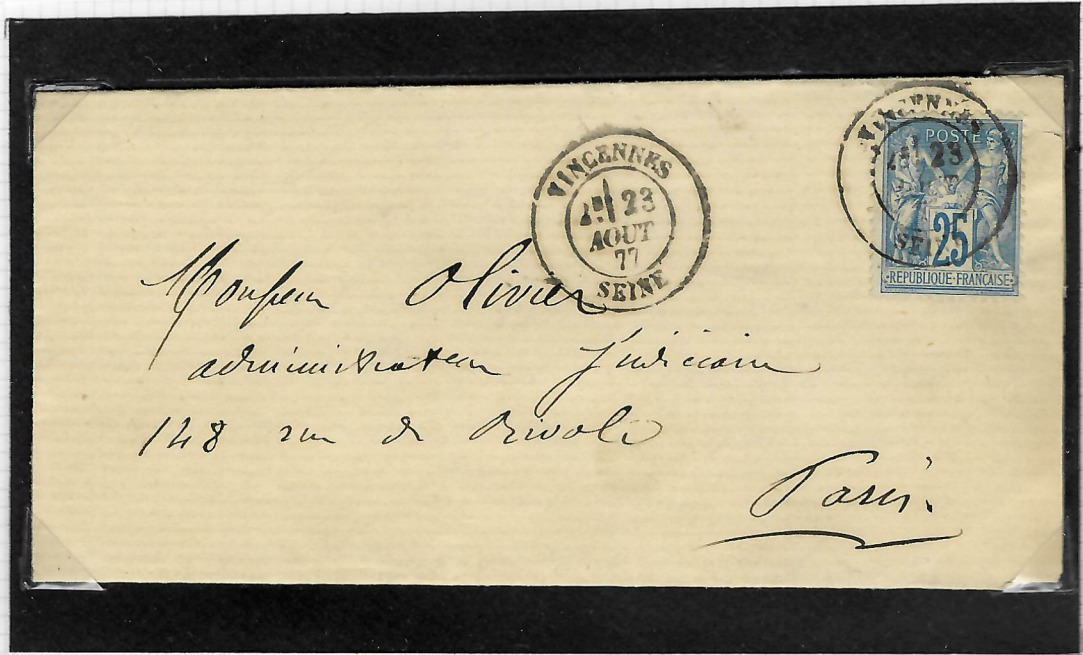 VINCENNES
23
AOUT
77
SEINE
VINCENNES
23
SEINE
POSTE
25
REPUBLIQUE FRANÇAISE
Monsieur Olivier
administrateur Judiciaire
148 rue de Rivoli
Paris.